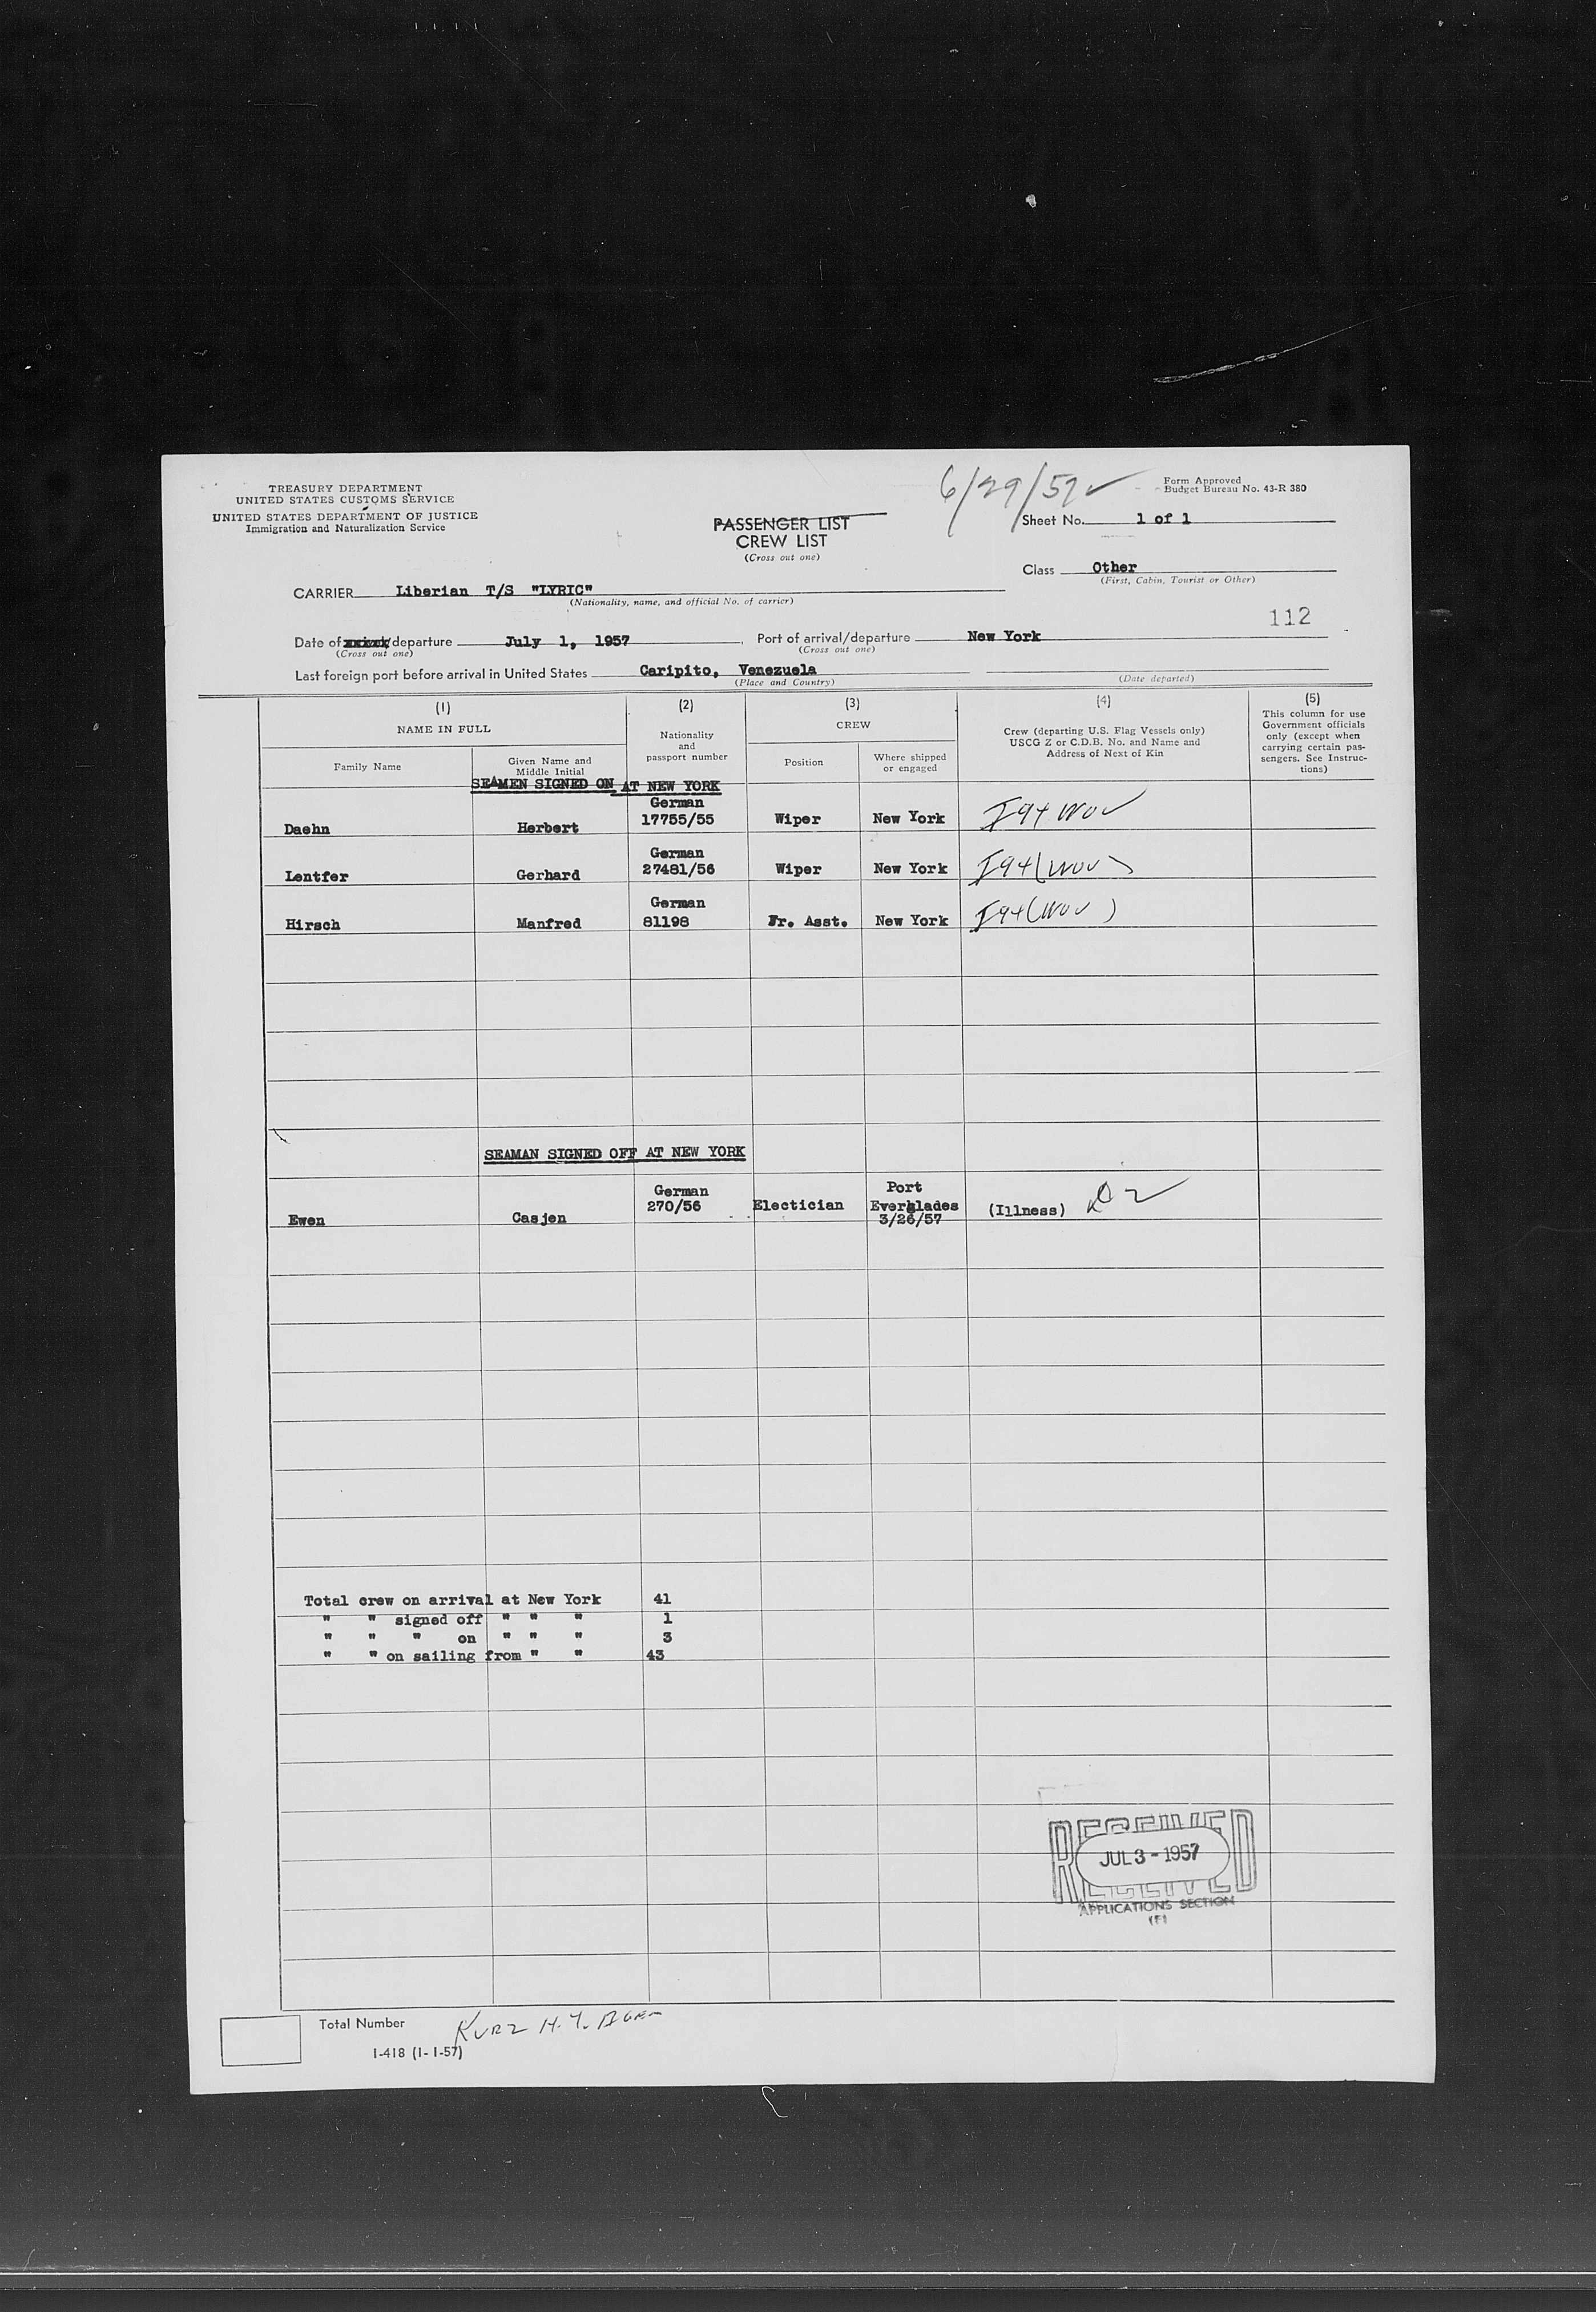 TREASURY DEPARTMENT
UNITED STATES CUSTOMS SERVICE
UNITED STATES DEPARTMENT OF JUSTICE
Immigration and Naturalization Service
6/29/57
Form Approved
Budget Bureau No. 43-R 380
PASSENGER LIST
CREW LIST
(Cross out one)
Sheet No. 1 of 1
Class Other
(First, Cabin, Tourist or Other)
CARRIER Liberian T/S "LYRIC"
(Nationality, name, and official No. of carrier)
112
Date of departure July 1, 1957 Port of arrival/departure New York
(Cross out one) (Cross out one)
Last foreign port before arrival in United States Caripito, Venezuela
(Place and Country) (Date departed)
(1) (2) (3) (4) (5)
NAME IN FULL
Family Name
Given Name and
Middle Initial
Nationality
and
passport number
CREW
Position
Where shipped
or engaged
Crew (departing U.S. Flag Vessels only)
USCG Z or C.D.B. No. and Name and
Address of Next of Kin
This column for use
Government officials
only (except when
carrying certain pas-
sengers. See Instruc-
tions)
SEAMEN SIGNED ON AT NEW YORK
German
Daehn Herbert 17755/55 Wiper New York I94 WOV
German
Lentfer Gerhard 27481/56 Wiper New York I94 (WOV)
German
Hirsch Manfred 81198 Fr. Asst. New York I94 (WOV)
SEAMAN SIGNED OFF AT NEW YORK
German Port
Ewen Casjen 270/56 Electician Everglades (Illness) D2
3/26/57
Total crew on arrival at New York 41
" " signed off " " " 1
" " " on " " " 3
" " on sailing from " " 43
RECEIVED
JUL 3 - 1957
APPLICATIONS SECTION
Total Number
KURZ
I-418 (1-1-57)